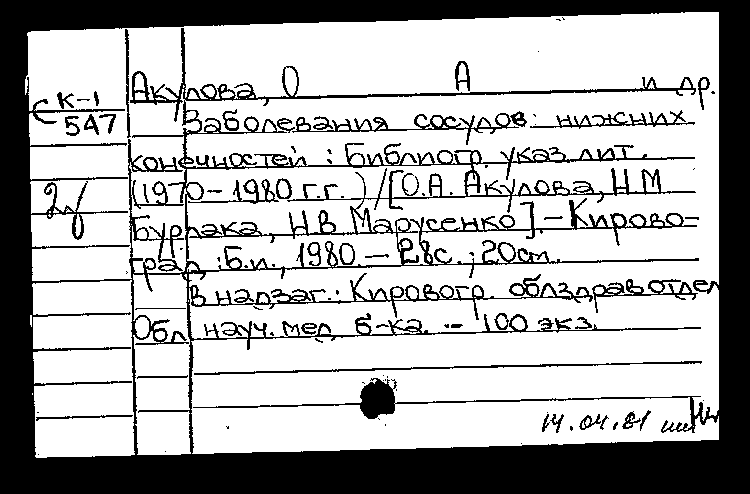 Акулова, О А и др.
С К-1
547
Заболевания сосудов нижних
конечностей : Библиогр. указ. лит.
(1970-1980 г.г.) / [О.А. Акулова, Н.М
Бурлака, Н.В Марусенко]. - Кирово-
град : Б.и., 1980. - 28с. ; 20см.
В надзаг.: Кировогр. облздравотдел
Обл науч. мед. б-ка. - 100 экз.
14.04.81